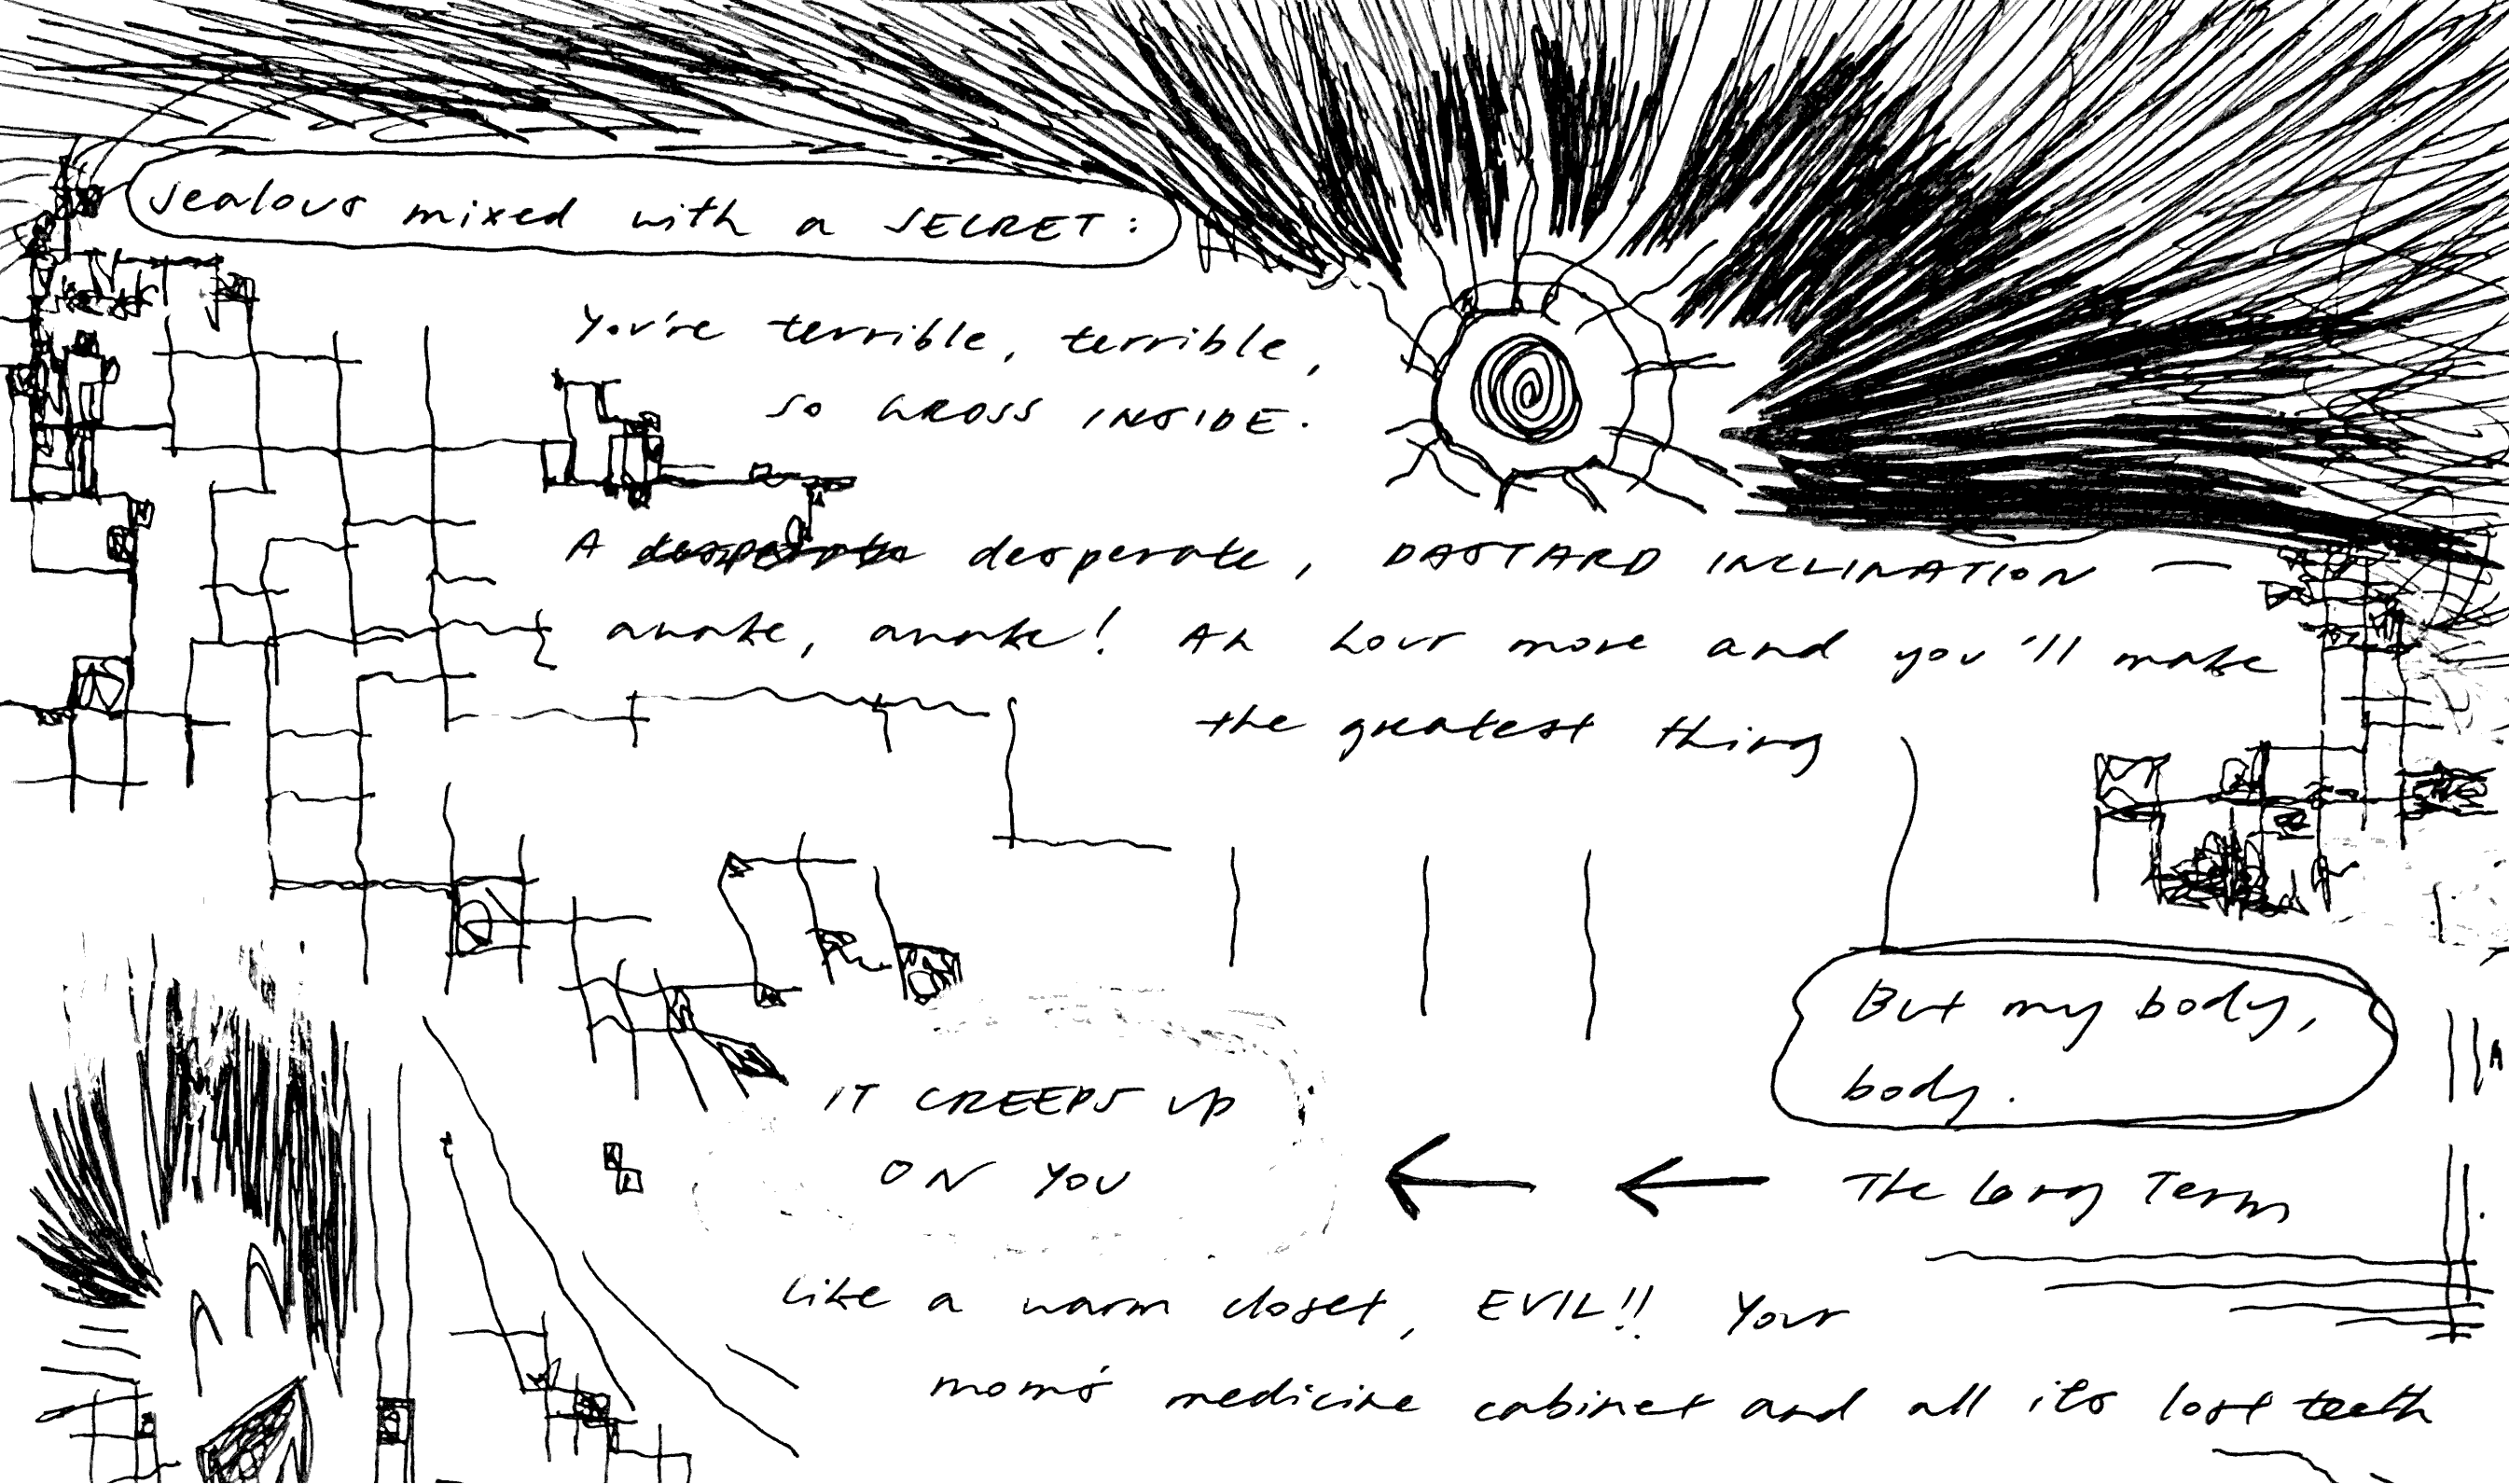 Jealous mixed with a SECRET:
You're terrible, terrible,
so GROSS INSIDE.
A desperate desperate, DASTARD INCLINATION —
awake, awake! An hour more and you'll make
the greatest thing
But my body,
body.
IT CREEPS UP
ON YOU
← ← The Long Term
Like a warm closet, EVIL!! Your
mom's medicine cabinet and all its lost teeth